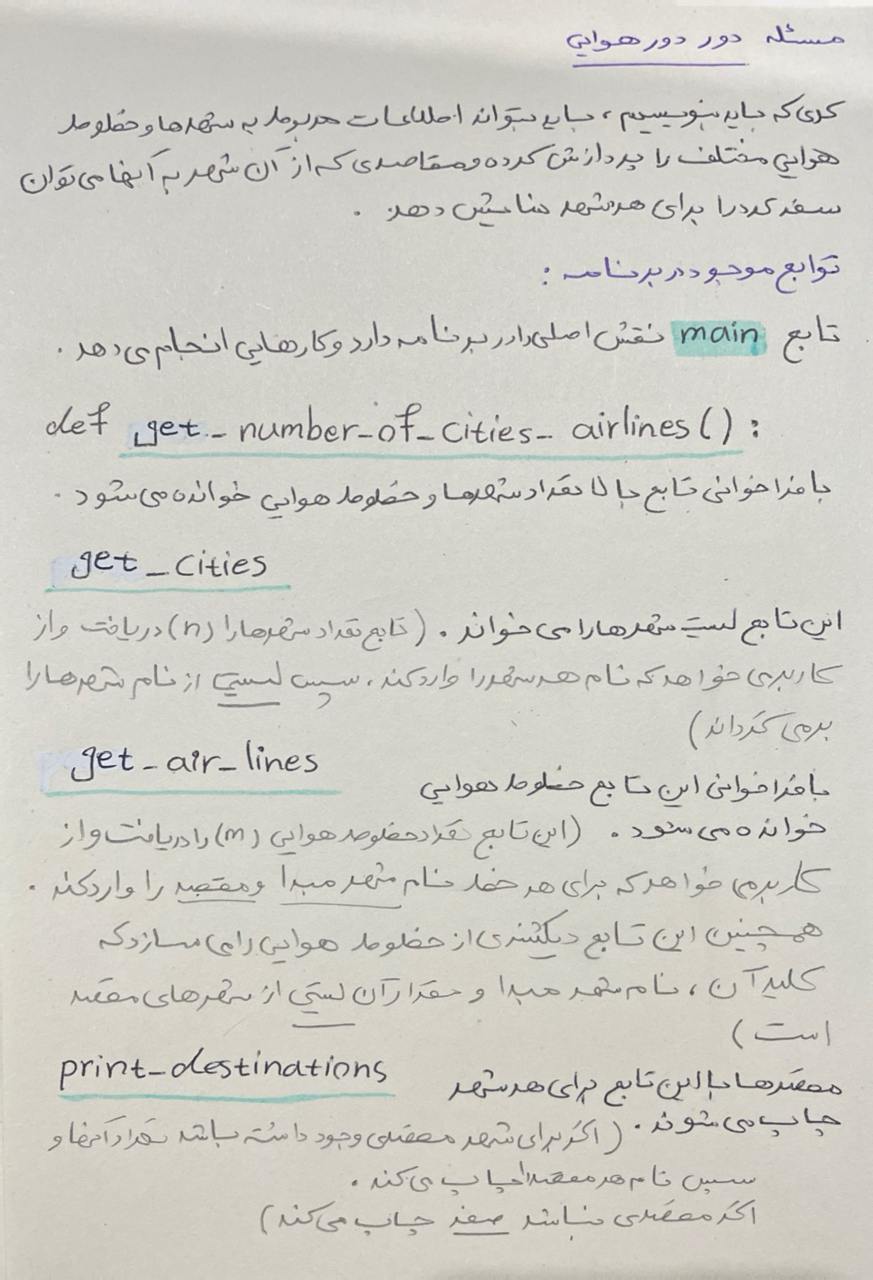 مسئله دور دور هوایی
کدی که باید بنویسیم، باید بتواند اطلاعات مربوط به شهرها و خطوط
هوایی مختلف را پردازش کرده و مقاصدی که از آن شهر به آنها می توان
سفر کرد را برای هر شهر نمایش دهد.
توابع موجود در برنامه :
تابع main نقش اصلی را در برنامه دارد و کارهایی انجام می دهد.
def get_number_of_cities_airlines():
با فراخوانی تابع بالا تعداد شهرها و خطوط هوایی خوانده می شود.
get_cities
این تابع لیست شهرها را می خواند. (تابع تعداد شهرها را (n) دریافت و از
کاربر می خواهد که نام هر شهر را وارد کند، سپس لیستی از نام شهرها را
برمی گرداند)
get_air_lines
با فراخوانی این تابع خطوط هوایی
خوانده می شود. (این تابع تعداد خطوط هوایی (m) را دریافت و از
کاربر می خواهد که برای هر خط نام شهر مبدا و مقصد را وارد کند.
همچنین این تابع دیکشنری از خطوط هوایی را می سازد که
کلید آن، نام شهر مبدا و مقدار آن لیستی از شهرهای مقصد
است)
print_destinations
مقصدها با این تابع برای هر شهر
چاپ می شوند. (اگر برای شهر مقصدی وجود داشته باشد تعداد آنها و
سپس نام هر مقصد را چاپ می کند.
اگر مقصدی نباشد صفر چاپ می کند)